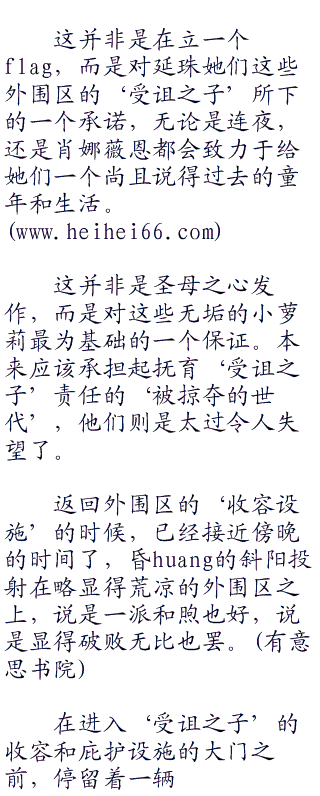 这并非是在立一个
flag，而是对延珠她们这些
外围区的‘受诅之子’所下
的一个承诺，无论是连夜，
还是肖娜薇恩都会致力于给
她们一个尚且说得过去的童
年和生活。
(www.heihei66.com)
这并非是圣母之心发
作，而是对这些无垢的小萝
莉最为基础的一个保证。本
来应该承担起抚育‘受诅之
子’责任的‘被掠夺的世
代’，他们则是太过令人失
望了。
返回外围区的‘收容设
施’的时候，已经接近傍晚
的时间了，昏huang的斜阳投
射在略显得荒凉的外围区之
上，说是一派和煦也好，说
是显得破败无比也罢。(有意
思书院)
在进入‘受诅之子’的
收容和庇护设施的大门之
前，停留着一辆